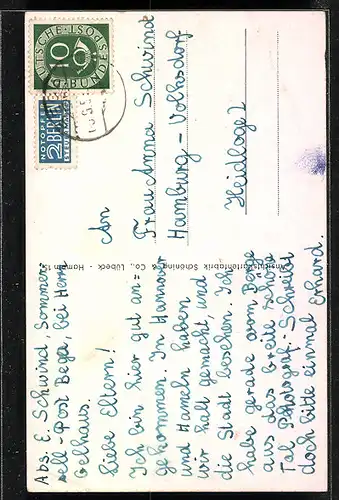 Abs. E. Schwind, Sommer-
sell - Post Bega, bei Herrn
Gelhaus.
Liebe Eltern!
Ich bin hier gut an-
gekommen. In Hannover
und Hameln haben
wir halt gemacht, und
die Stadt besehen. Ich
habe gerade vom Berge
aus das breite schöne
Tal photogr. Schreibt
doch bitte einmal Erhard.
Ansichtskartenfabrik Schöning & Co., Lübeck - Hamburg 15
An
Frau Anna Schwind
Hamburg - Volksdorf
Heidloge 2
DEUTSCHE BUNDESPOST
10
NOTOPFER
2 BERLIN
STEUERMARKE